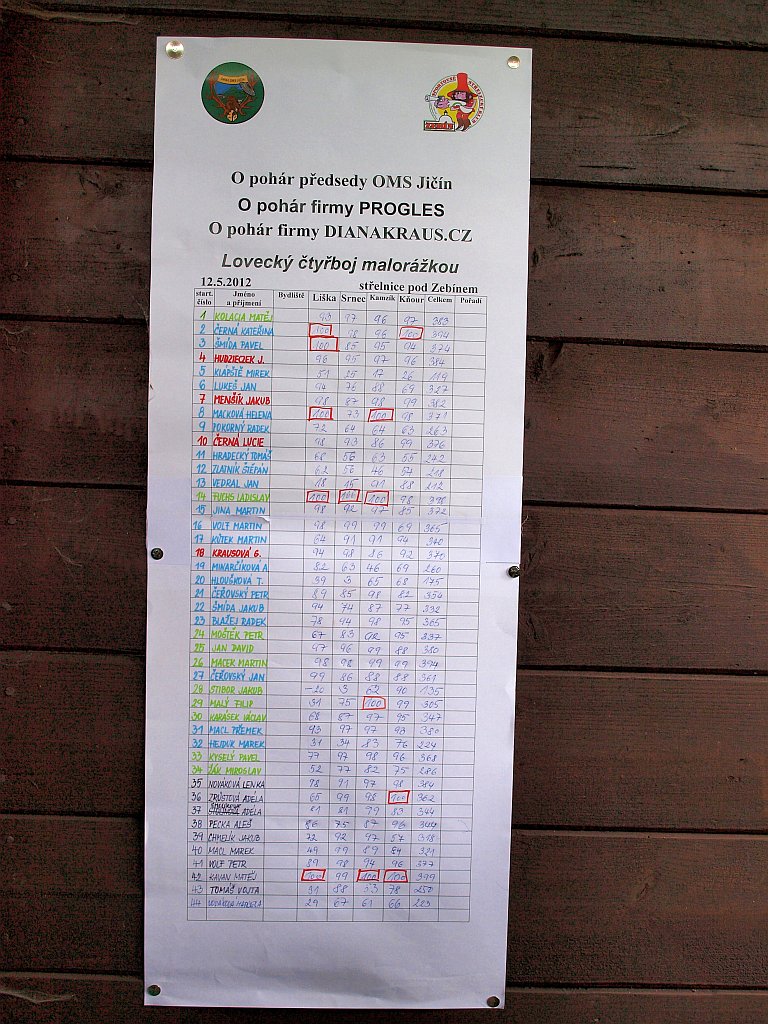 O pohár předsedy OMS Jičín
O pohár firmy PROGLES
O pohár firmy DIANAKRAUS.CZ
Lovecký čtyřboj malorážkou
12.5.2012 střelnice pod Zebínem
start. číslo Jméno a příjmení Bydliště Liška Srnec Kamzík Kňour Celkem Pořadí
1 KOLACIA MATĚJ 93 97 96 97 383
2 ČERNÁ KATEŘINA 100 98 96 100 394
3 ŠMÍDA PAVEL 100 85 95 94 374
4 HUDZIECZEK J. 96 95 97 96 384
5 KLÁPŠTĚ MIREK 51 25 17 26 119
6 LUKEŠ JAN 94 76 88 69 327
7 MENŠÍK JAKUB 98 87 98 99 382
8 MACKOVÁ HELENA 100 73 100 98 371
9 POKORNÝ RADEK 72 64 64 63 263
10 ČERNÁ LUCIE 98 93 86 99 376
11 HRADECKÝ TOMÁŠ 68 56 63 55 242
12 ZLATNÍK ŠTĚPÁN 62 56 46 54 218
13 VEDRAL JAN 18 15 91 88 212
14 FUCHS LADISLAV 100 100 100 98 398
15 JINA MARTIN 98 92 97 85 372
16 VOLF MARTIN 98 99 99 69 365
17 KŮTEK MARTIN 64 91 91 94 340
18 KRAUSOVÁ G. 94 98 86 92 370
19 MINARČÍKOVÁ A. 82 63 46 69 260
20 HLOUŠKOVÁ T. 39 3 65 68 175
21 ČEŘOVSKÝ PETR 89 85 98 82 354
22 ŠMÍDA JAKUB 94 74 87 77 332
23 BLAŽEJ RADEK 78 94 98 95 365
24 MOŠTĚK PETR 67 83 92 95 337
25 JAN DAVID 97 96 99 88 380
26 MACEK MARTIN 98 98 99 99 394
27 ČEŘOVSKÝ JAN 99 86 88 88 361
28 STIBOR JAKUB -20 3 62 90 135
29 MALÝ FILIP 31 75 100 99 305
30 KARÁSEK VÁCLAV 68 87 97 95 347
31 MACL PŘEMEK 93 97 97 93 380
32 HEJDUK MAREK 31 34 83 76 224
33 KYSELÝ PAVEL 77 97 98 96 368
34 ŽÁK MIROSLAV 52 77 82 75 286
35 NOVÁKOVÁ LENKA 98 91 97 98 384
36 ZRŮSTOVÁ ADÉLA 65 99 98 100 362
37 ADÉLA 81 81 99 83 344
38 PECKA ALEŠ 86 75 87 96 344
39 CHMELÍK JAKUB 72 92 97 57 318
40 MACL MAREK 49 99 89 84 321
41 VOLF PETR 89 98 94 96 377
42 KAVAN MATĚJ 100 99 100 100 399
43 TOMÁŠ VOJTA 31 88 53 78 250
44 29 67 61 66 223